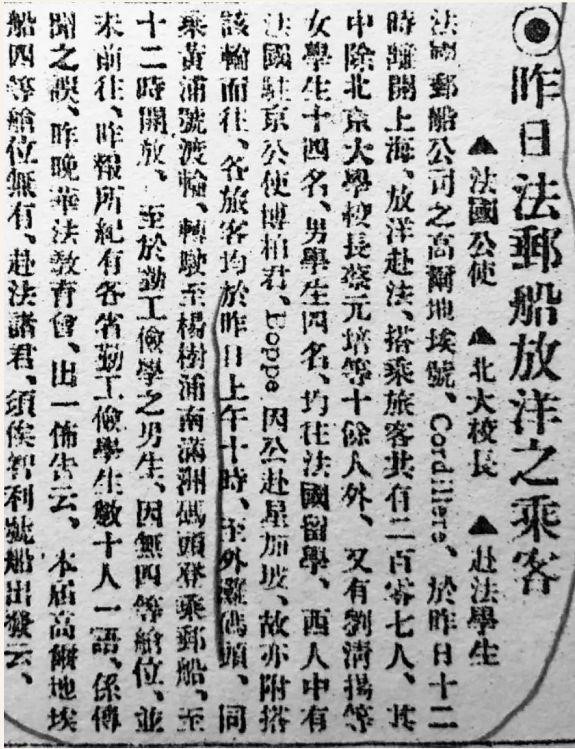 ◉昨日法郵船放洋之乘客
▲法國公使 ▲北大校長 ▲赴法學生
法國郵船公司之高爾地埃號、Cordillere、於昨日十二
時離開上海、放洋赴法、搭乘旅客共有二百零七人、其
中除北京大學校長蔡元培等十餘人外、又有劉淸揚等
女學生十四名、男學生四名、均往法國留學、西人中有
法國駐京公使博柏君、Boppe 因公赴星加坡、故亦附搭
該輪而往、各旅客均於昨日上午十時、至外灘碼頭、同
乘黃浦號渡輪、轉駛至楊樹浦南滿洲碼頭登乘郵船、至
十二時開放、至於勤工儉學之男生、因無四等艙位、並
未前往、昨報所紀有各省勤工儉學生數十人一語、係傳
聞之誤、昨晚華法敎育會、出一佈吿云、本屆高爾地埃
船四等艙位無有、赴法諸君、須俟智利號船出發云、